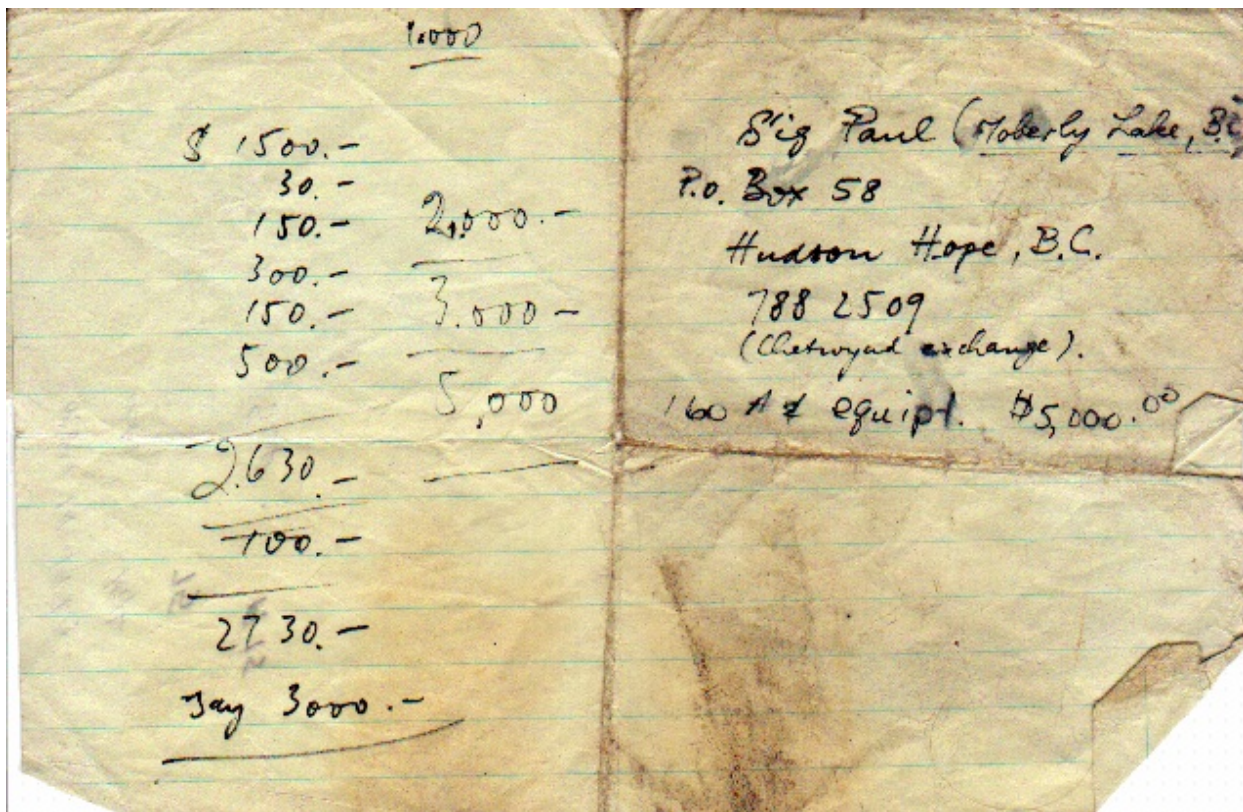 1.000
$ 1500.-
30.-
150.-
300.-
150.-
500.-
2.630.-
100.-
2730.-
Say 3000.-
2,000.-
3.000-
5,000
Sig Paul (Moberly Lake, B.C.
P.O. Box 58
Hudson Hope, B.C.
788 2509
(Chetwynd exchange).
160 A & equipt. $5,000.00